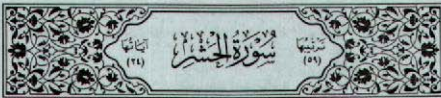 ترتيبها (٥٩) سُورَةُ الحَشْرِ آياتها (٢٤)